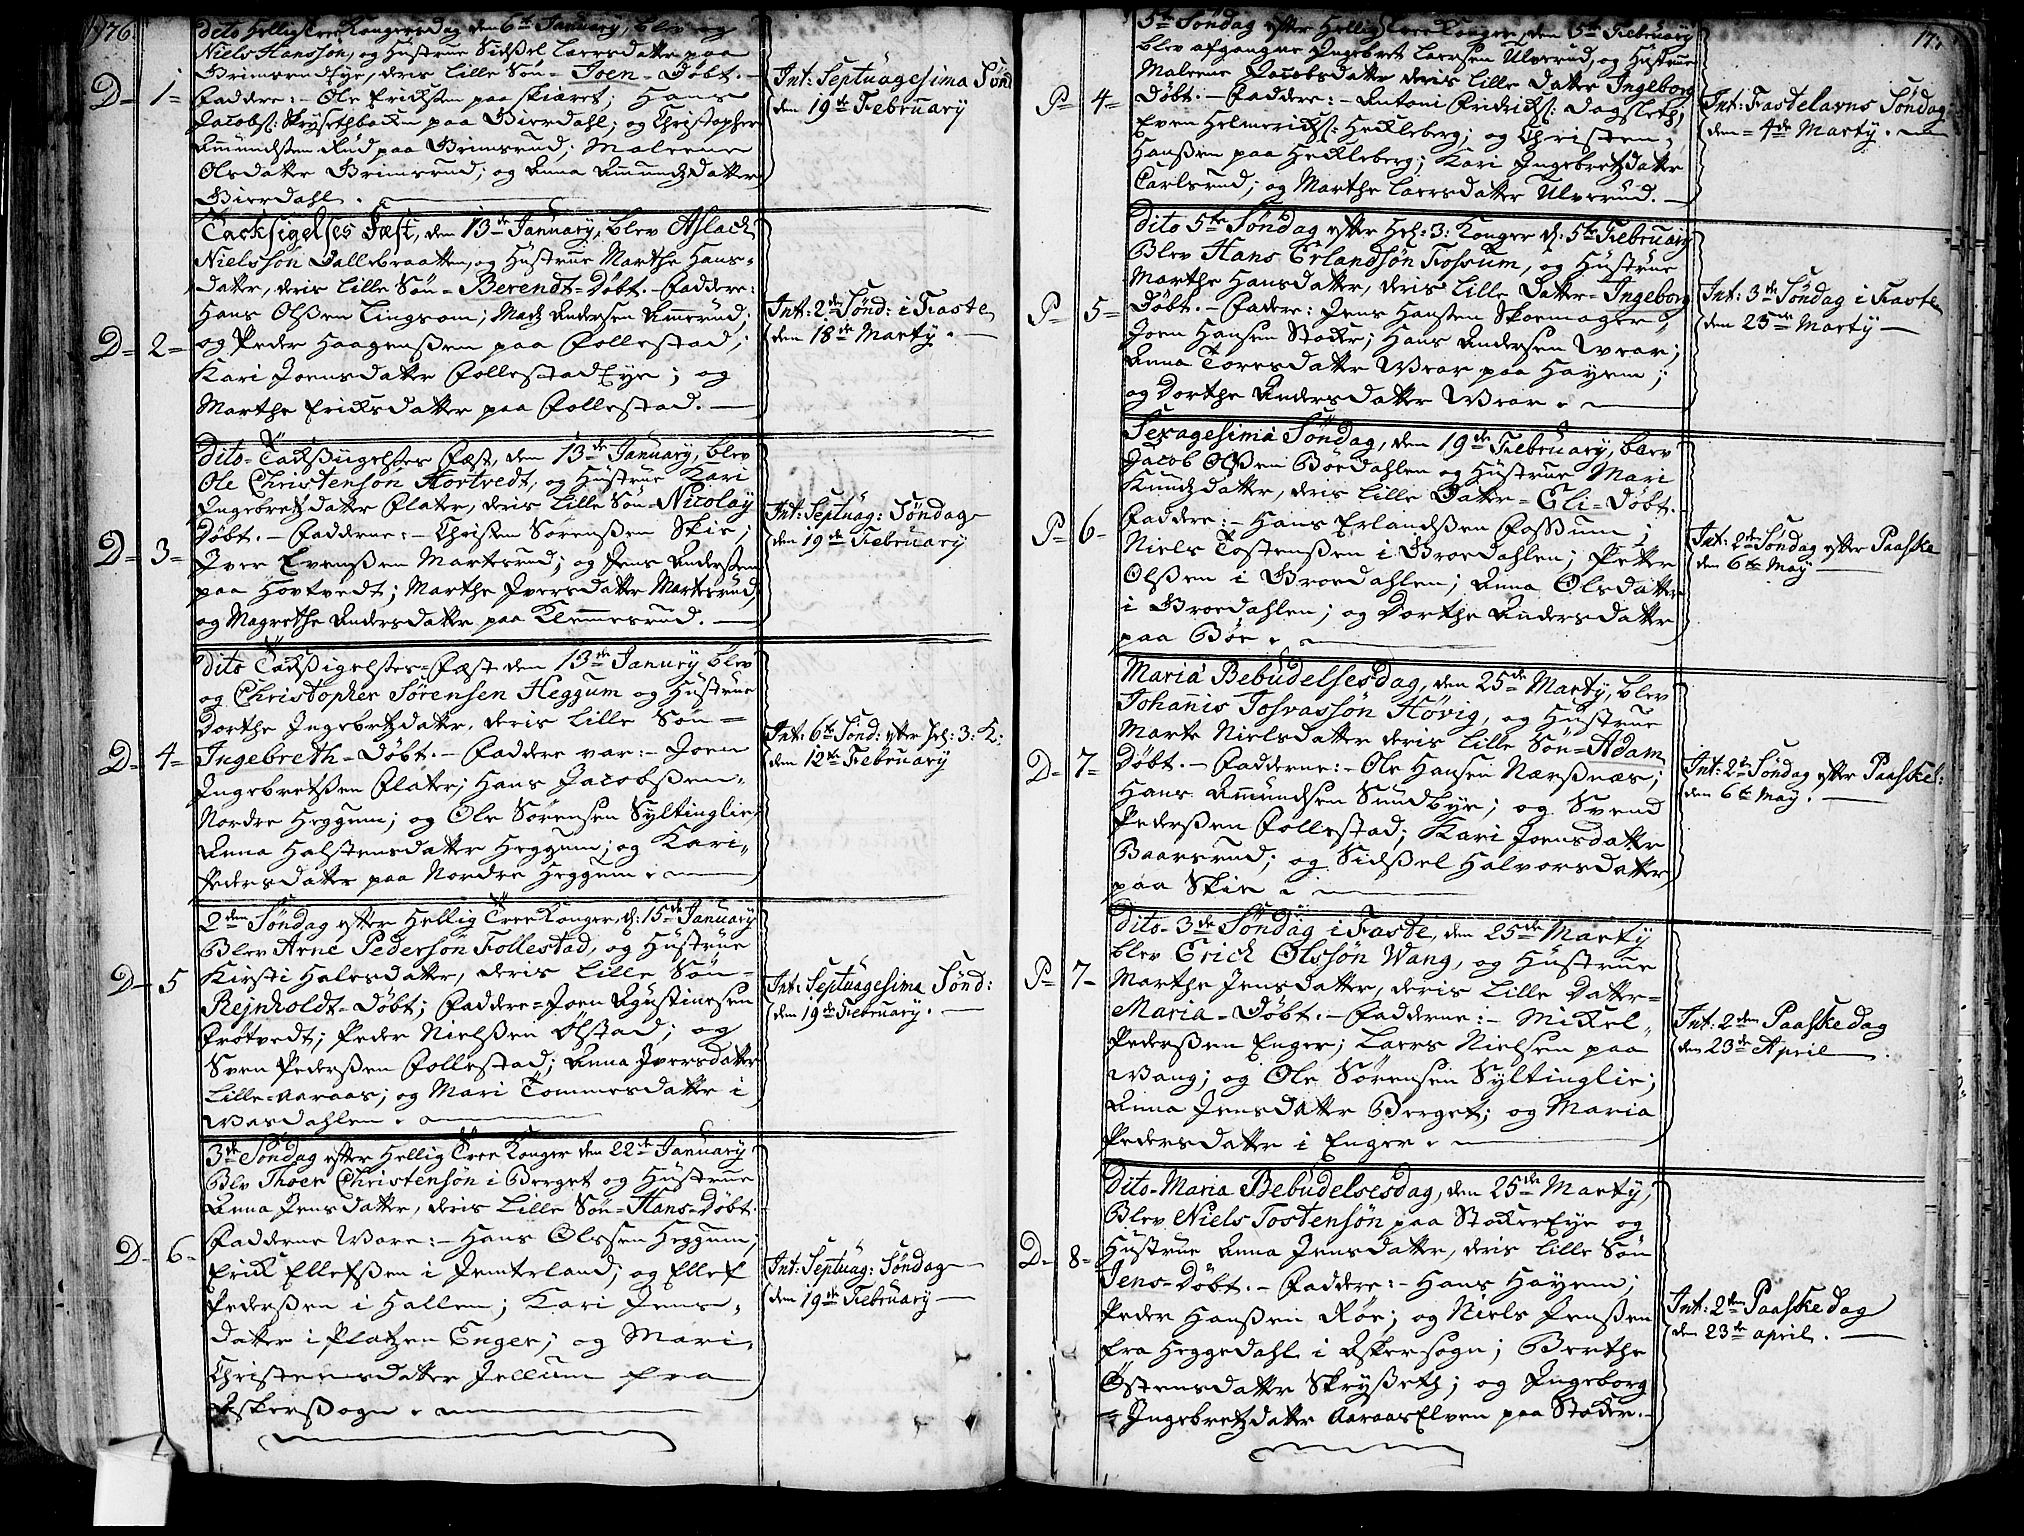 176.
Dito Hellig Tree Kongersdag den 6te January, blev og
Niels Hansson, og Hustrue Sidsel Laersdatter paa
Grimsrud Eye, deris Lille Søn = Joen = Døbt. -
D = 1 = Faddere: - Ole Ericksen paa Skiæret; Hans
Jacobs: Skrysethbacken paa Gierdahl; og Christopher
Amundsen Rud paa Grimsrud; Maleene
Olsdatter Grimsrud; og Anna Amundsdatter
Gierdahl.
Int: Septuagesima Sönd
den 19de February
Tacksigelses Fæst, den 13de January, blev Aslach
Nielsson Dallebraatten, og Hustrue Marthe Hans-
datter, deris Lille Søn = Berendt = Døbt. - Faddere:
Hans Olsen Lingsom; Mads Andersen Amerud;
D = 2 = og Peder Haagensen paa Follestad;
Kari Joensdatter Follestad Eye; og
Marthe Ericksdatter paa Follestad. -
Int: 2de Sønd: i Faste
den 18de Marty. -
Dito Tacksiigelses Fæst, den 13de January, blev
Ole Christensøn Hortvedt, og Hustrue Kari
Ingebretzdatter Flater, deris Lille Søn = Nicolay
Døbt. - Fadderne: - Christen Sørensen Skie;
D = 3 = Iver Evensen Martesrud; og Jens Andersen
paa Hovtvedt; Marthe Iversdatter Martesrud;
og Magrethe Andersdatter paa Klemmesrud. -
Int: Septuag: Søndag
den 19de February
Dito Tacksigelses = Fæst den 13de January blev
og Christopher Sørensen Heggum og Hustrue
Dorthe Ingebretzdatter, deris Lille Søn =
D = 4 = Ingebreth = Døbt. - Faddere var: - Joen
Ingebretsen Flater; Hans Jacobsen
Nordre Heggum; og Ole Sørensen Syltinglie;
Anna Halstensdatter Heggum; og Kari
Pedersdatter paa Nordre Heggum
Int: 6te Sønd: efter Hel: 3: K:
den 12te February
2den Søndag efter Hellig Tree Konger, d: 15de January
Blev Arne Pedersøn Follestad, og Hustrue
D - 5 Kirsti Halesdatter, deris Lille Søn =
Rejnholdt = Døbt; Faddere = Joen Agustinesen
Frøtvedt; Peder Nielsen Ølstad; og
Sven Pedersen Follestad; Anna Iversdatter
Lille = Aaraas; og Mari Tommesdatter i
Wardahlen.
Int: Septuagesima Sönd:
den 19de February. -
3de Søndag efter Hellig Tree Konger den 22de January
Blev Thoer Christensøn i Berget og Hustrue
Anna Jensdatter, deris Lille Søn = Hans = Døbt.
D - 6 - Fadderne Ware: - Hans Olssen Heggum;
Erick Ellefsen i Jemterland; og Ellef
Pedersen i Hallen; Kari Jens-
datter i Platzen Enger; og Mari
Christensdatter Jellum fra
Askersogn
Int: Septuag: Søndag
den 19de February -
17
5te Søndag efter Hellig Tree Konger, den 5te February
blev afgangne Ingebret Laersen Ulverud, og Hustrue
Maleene Jacobsdatter deris Lille Datter Ingeborg
P = 4 = Døbt. - Faddere: - Antoni Fridricks: Dagsleth;
Even Helmericks: Heckleberg; og Christen
Hansen paa Heckleberg; Kari Ingebretzdatter
Carlsrud; og Marthe Laersdatter Ulverud. -
Int: Fastelavns Söndag
den = 4de Marty. -
Dito 5te Søndag efter Hel: 3: Konger d: 5te February
Blev Hans Erlandsøn Fossum, og Hustrue
Marthe Hansdatter, deris Lille Datter = Ingeborg
P = 5 = Døbt. - Faddere: Jens Hansen Skoemager;
Joen Hansen Stocke; Hans Andersen Wear;
Anna Toresdatter Wear paa Hayem;
og Dorthe Andersdatter Wear
Int: 3de Söndag i Faste
den 25de Marty -
Sexagesima Søndag, den 19de February, blev
Jacob Olsen Böedahlen og Hustrue Mari
Knudzdatter, deris Lille Datter = Eli = Døbt.
P = 6 - Faddere: - Hans Erlandsen Fossum;
Niels Tostensen i Groedahlen; Petter
Olsen i Groedahlen; Anna Olsdatter
i Groedahlen; og Dorthe Andersdatter
paa Böe
Int: 2de Söndag efter Paaske
den 6te May -
Maria Bebudelsesdag, den 25de Marty, blev
Johannis Josvassøn Høvig, og Hustrue
Marte Nielsdatter deris Lille Søn = Adam
D = 7 = Døbt. - Fadderne: - Ole Hansen Nærsnæs;
Hans Amundsen Sundbye; og Svend
Pedersen Follestad; Kari Joensdatter
Baarsrud; og Sidsel Halvorsdatter
paa Skie
Int: 2de Søndag efter Paaske:
den 6te May. -
Dito = 3de Søndag i Faste, den 25de Marty
blev Erick Olssøn Wang, og Hustrue
P = 7 - Marthe Jensdatter, deris Lille Datter =
Maria = Døbt. - Fadderne: - Mickel
Pedersen Enger; Laers Nielsen paa
Wang; og Ole Sørensen Syltinglie;
Anna Jensdatter Berget; og Maria
Pedersdatter i Enger
Int: 2den Paaskedag
den 23de April
Dito = Maria Bebudelsesdag, den 25de Marty,
Blev Niels Tostensøn paa Stocker Eye og
D - 8 - Hustrue Anna Jensdatter, deris Lille Søn
Jens = Døbt. - Faddere: - Hans Hayem;
Peder Hansen Röe; og Niels Jensen
fra Heggedahl i Askersogn; Berthe
Østensdatter Skryseth; og Ingeborg
= Ingebretzdatter Aaraas Elven paa Stocker. -
Int: 2den Paaskedag
den 23de april. -